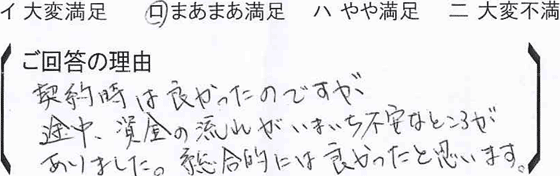 イ 大変満足 ロ まあまあ満足 ハ やや満足 ニ 大変不満
ご回答の理由
契約時は良かったのですが、
途中、資金の流れがいまいち不安なところが
ありました。総合的には良かったと思います。